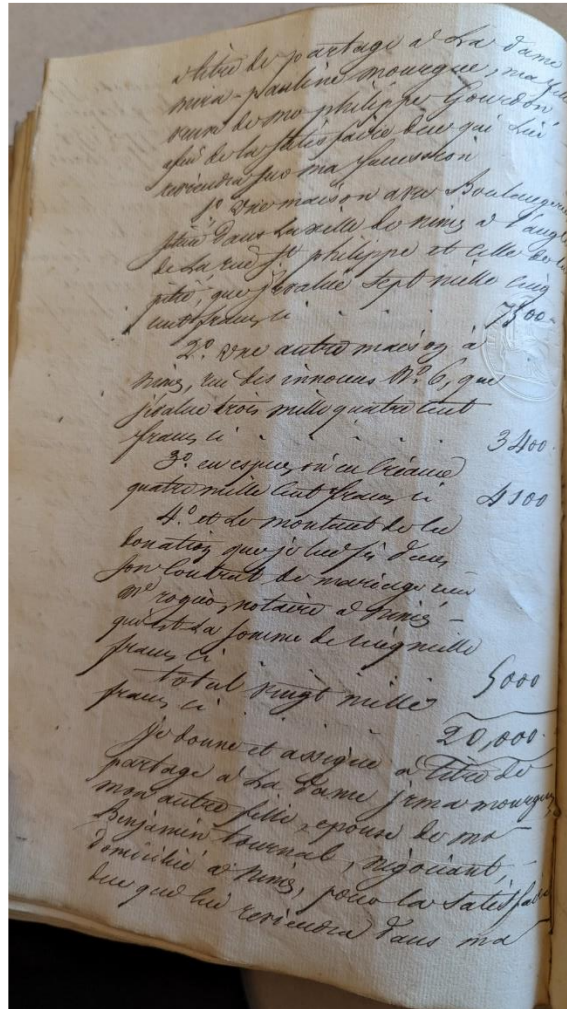 a titre de partage a La dame
mira-pauline mourgue, ma fille
veuve de mo philippe Gourdon
afin de la satisfaire de ce qui lui
reviendra sur ma succession
1º une maison avec Boulangerie
située dans La ville de nimes a l'angle
de La rue St philippe et celle de la
pitié, que j'evalue sept mille cinq
cent francs ci 7500-
2º une autre maison à
nimes, rue des innocens Nº 6, que
j'evalue trois mille quatre cent
francs ci . . . . . 3400-
3º en especes, ou en Créances
quatre mille cent francs ci 4100
4º et Le montant de la
donation que je lui fis dans
son Contrat de mariage reçu
me notaire a nimes -
qui est La somme de cinq mille
francs ci 5000
total vingt mille
francs ci 20,000-
je donne et assigne a titre de
partage a La dame irma mourgue,
mon autre fille, epouse de mo -
Benjamin tournal, négociant, -
domicilié a nimes, pour la satisfaire
de ce que lui reviendra dans ma